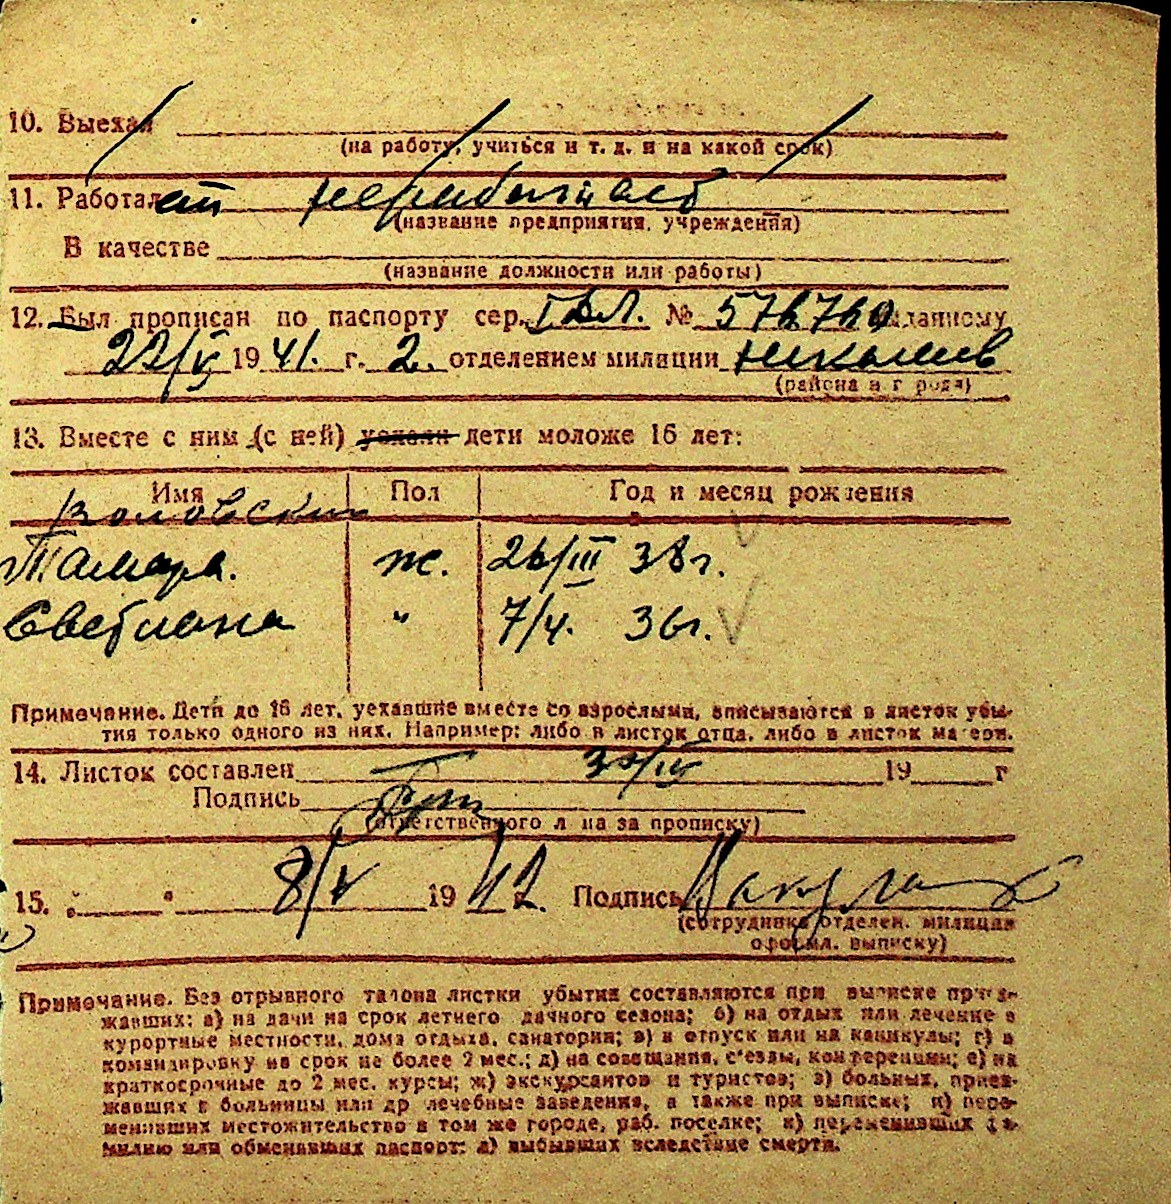 10. Выехал
(на работу, учиться и т. д. и на какой срок)
11. Работал
(название предприятия, учреждения)
В качестве
(название должности или работы)
12. Был прописан по паспорту сер. № выданному
22/V 1941. г. 2. отделением милиции Николаев
(района и города)
13. Вместе с ним (с ней) уехали дети моложе 16 лет:
Имя Пол Год и месяц рождения
Воловских
Тамара. ж. 26/III 38г.
Светлана " 7/V. 36г.
Примечание. Дети до 16 лет, уехавшие вместе со взрослыми, вписываются в листок убы-
тия только одного из них. Например: либо в листок отца, либо в листок матери.
14. Листок составлен 30/IV 19 г
Подпись
(ответственного лица за прописку)
15. " " 8/V 1942. Подпись
(сотрудника отделен. милиции
оформл. выписку)
Примечание. Без отрывного талона листки убытия составляются при выписке приез-
жавших: а) на дачи на срок летнего дачного сезона; б) на отдых или лечение в
курортные местности, дома отдыха, санатории; в) в отпуск или на каникулы; г) в
командировку на срок не более 2 мес.; д) на совещания, с'езды, конференции; е) на
краткосрочные до 2 мес. курсы; ж) экскурсантов и туристов; з) больных, приез-
жавших в больницы или др лечебные заведения, а также при выписке; и) пере-
менивших местожительство в том же городе, раб. поселке; к) переменивших фа-
милию или обменявших паспорт; л) выбывших вследствие смерти.